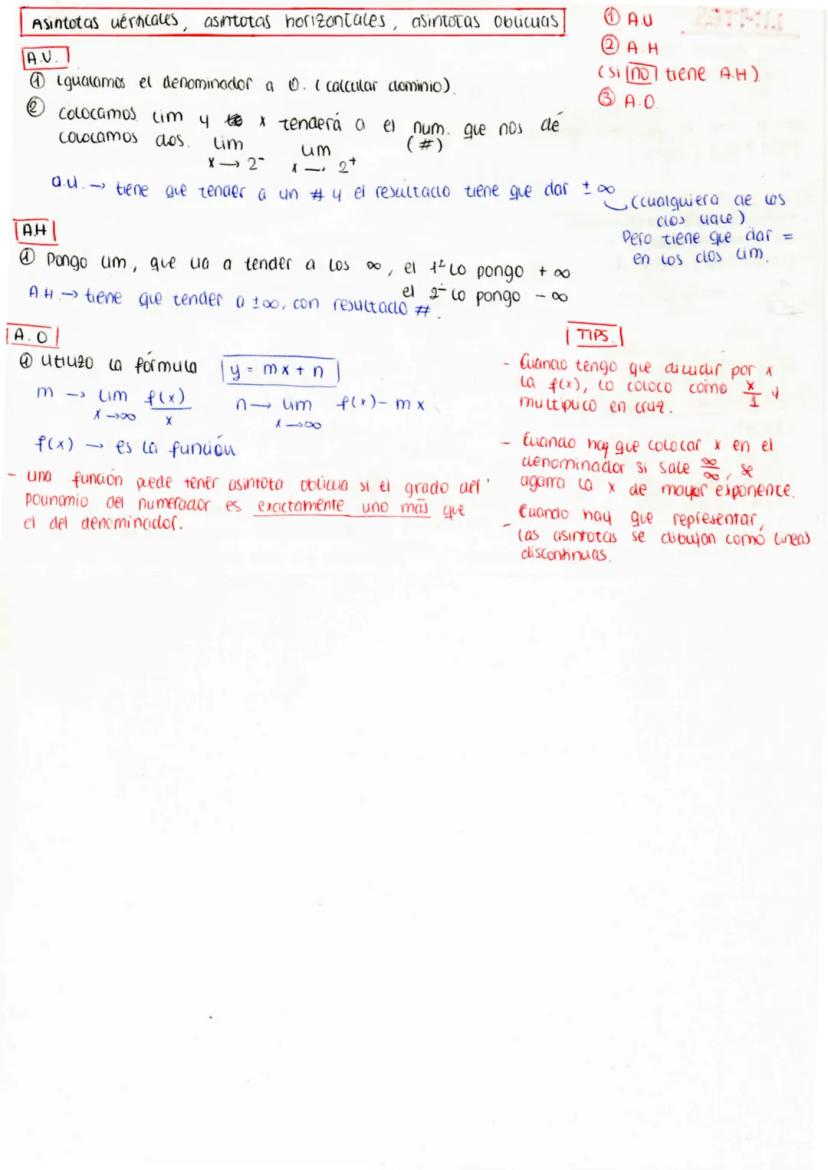 Asíntotas vérticales, asíntotas horizontales, asíntotas oblicuas
① A.U
② A.H
(si NO tiene A.H)
③ A.O.
A.V.
① igualamos el denominador a 0. (calcular dominio).
② colocamos lim y x tenderá a el num. que nos dé (#)
colocamos dos. lim x → 2⁻ lim x → 2⁺
a.v. → tiene que tender a un # y el resultado tiene que dar ± ∞
(cualquiera de los
dos vale)
Pero tiene que dar =
en los dos lim.
A.H
① Pongo lim, que va a tender a los ∞, el 1º lo pongo + ∞
el 2º lo pongo − ∞
A.H → tiene que tender a ±∞, con resultado #.
A.O
① utilizo la fórmula y = mx + n
m → lim x→∞ f(x)/x n → lim x→∞ f(x) − mx
f(x) → es la función
- una función puede tener asíntota oblicua si el grado del
polinomio del numerador es exactamente uno más que
el del denominador.
TIPS
- Cuando tengo que dividir por x
la f(x), lo coloco como x/1 y
multiplico en cruz.
- Cuando hay que colocar x en el
denominador si sale ∞/∞, se
agarra la x de mayor exponence.
- Cuando hay que representar,
las asíntotas se dibujan como lineas
discontinuas.